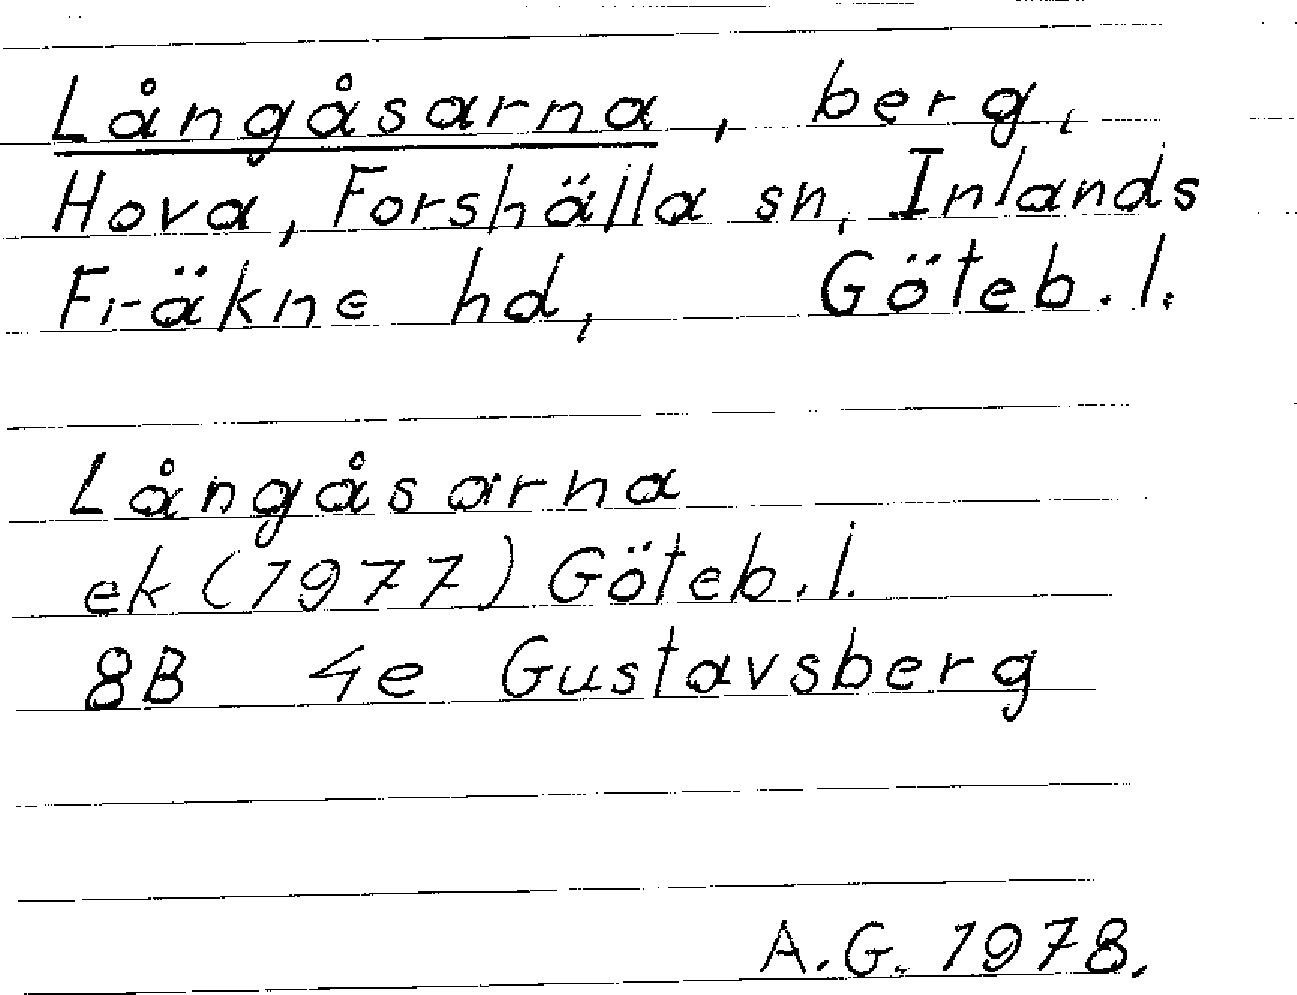 Långåsarna, berg,
Hova, Forshälla sn, Inlands
Fräkne hd, Göteb.l.
Långåsarna
ek (1977) Göteb.l.
8B 4e Gustavsberg
A.G. 1978.